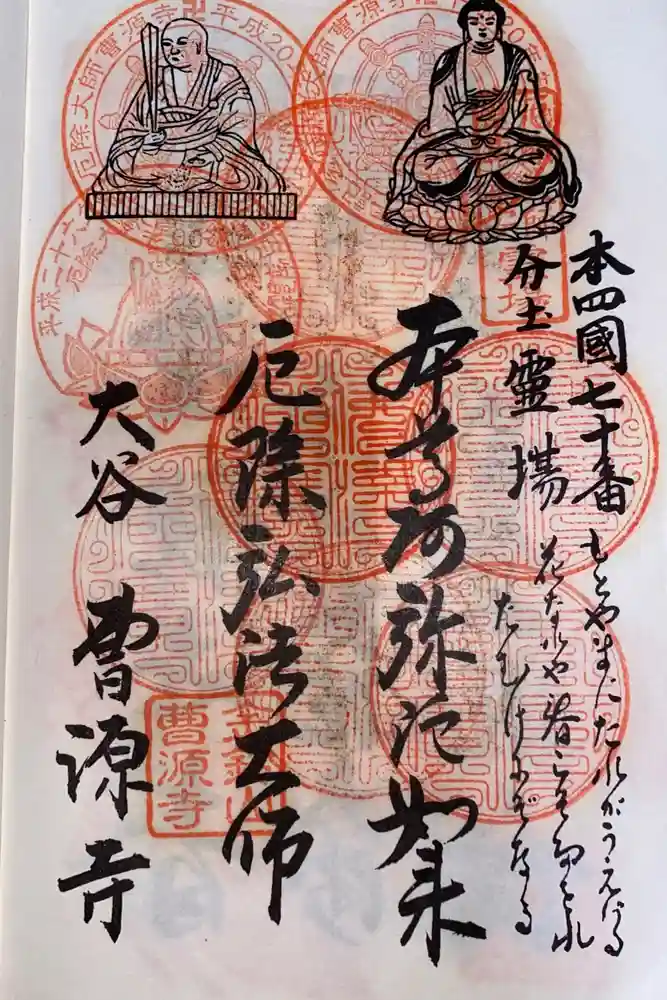 本四國七十番
分土靈場
もとやまにたれがうえける
花なれや春こそたをれ
たむけにぞなる
本尊阿弥陀如来
厄除弘法大師
大谷 曹源寺
厄除大師曹源寺卍平成20
平成二十六
厄除
曹源寺